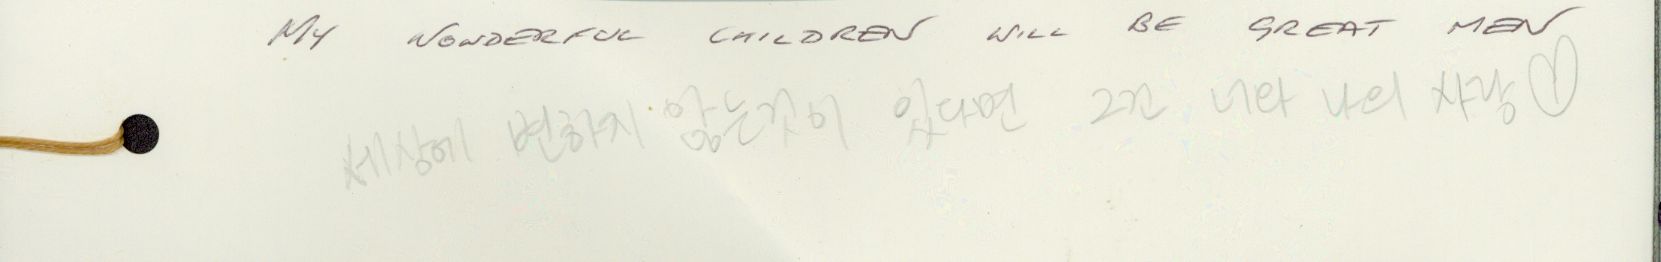 MY WONDERFUL CHILDREN WILL BE GREAT MEN
세상에 변하지 않는것이 있다면 그건 너와 나의 사랑♡